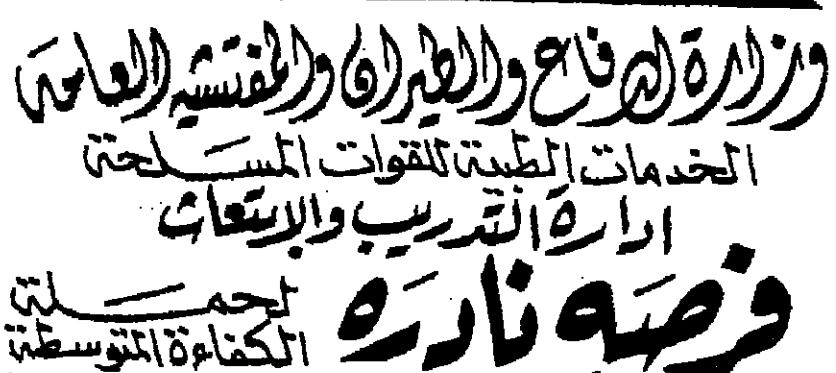 وزارة الدفاع والطيران والمفتشيه العامة
الخدمات الطبية للقوات المسلحة
ادارة التدريب والابتعاث
فرصه نادره
لحملة
الكفاءة المتوسطة